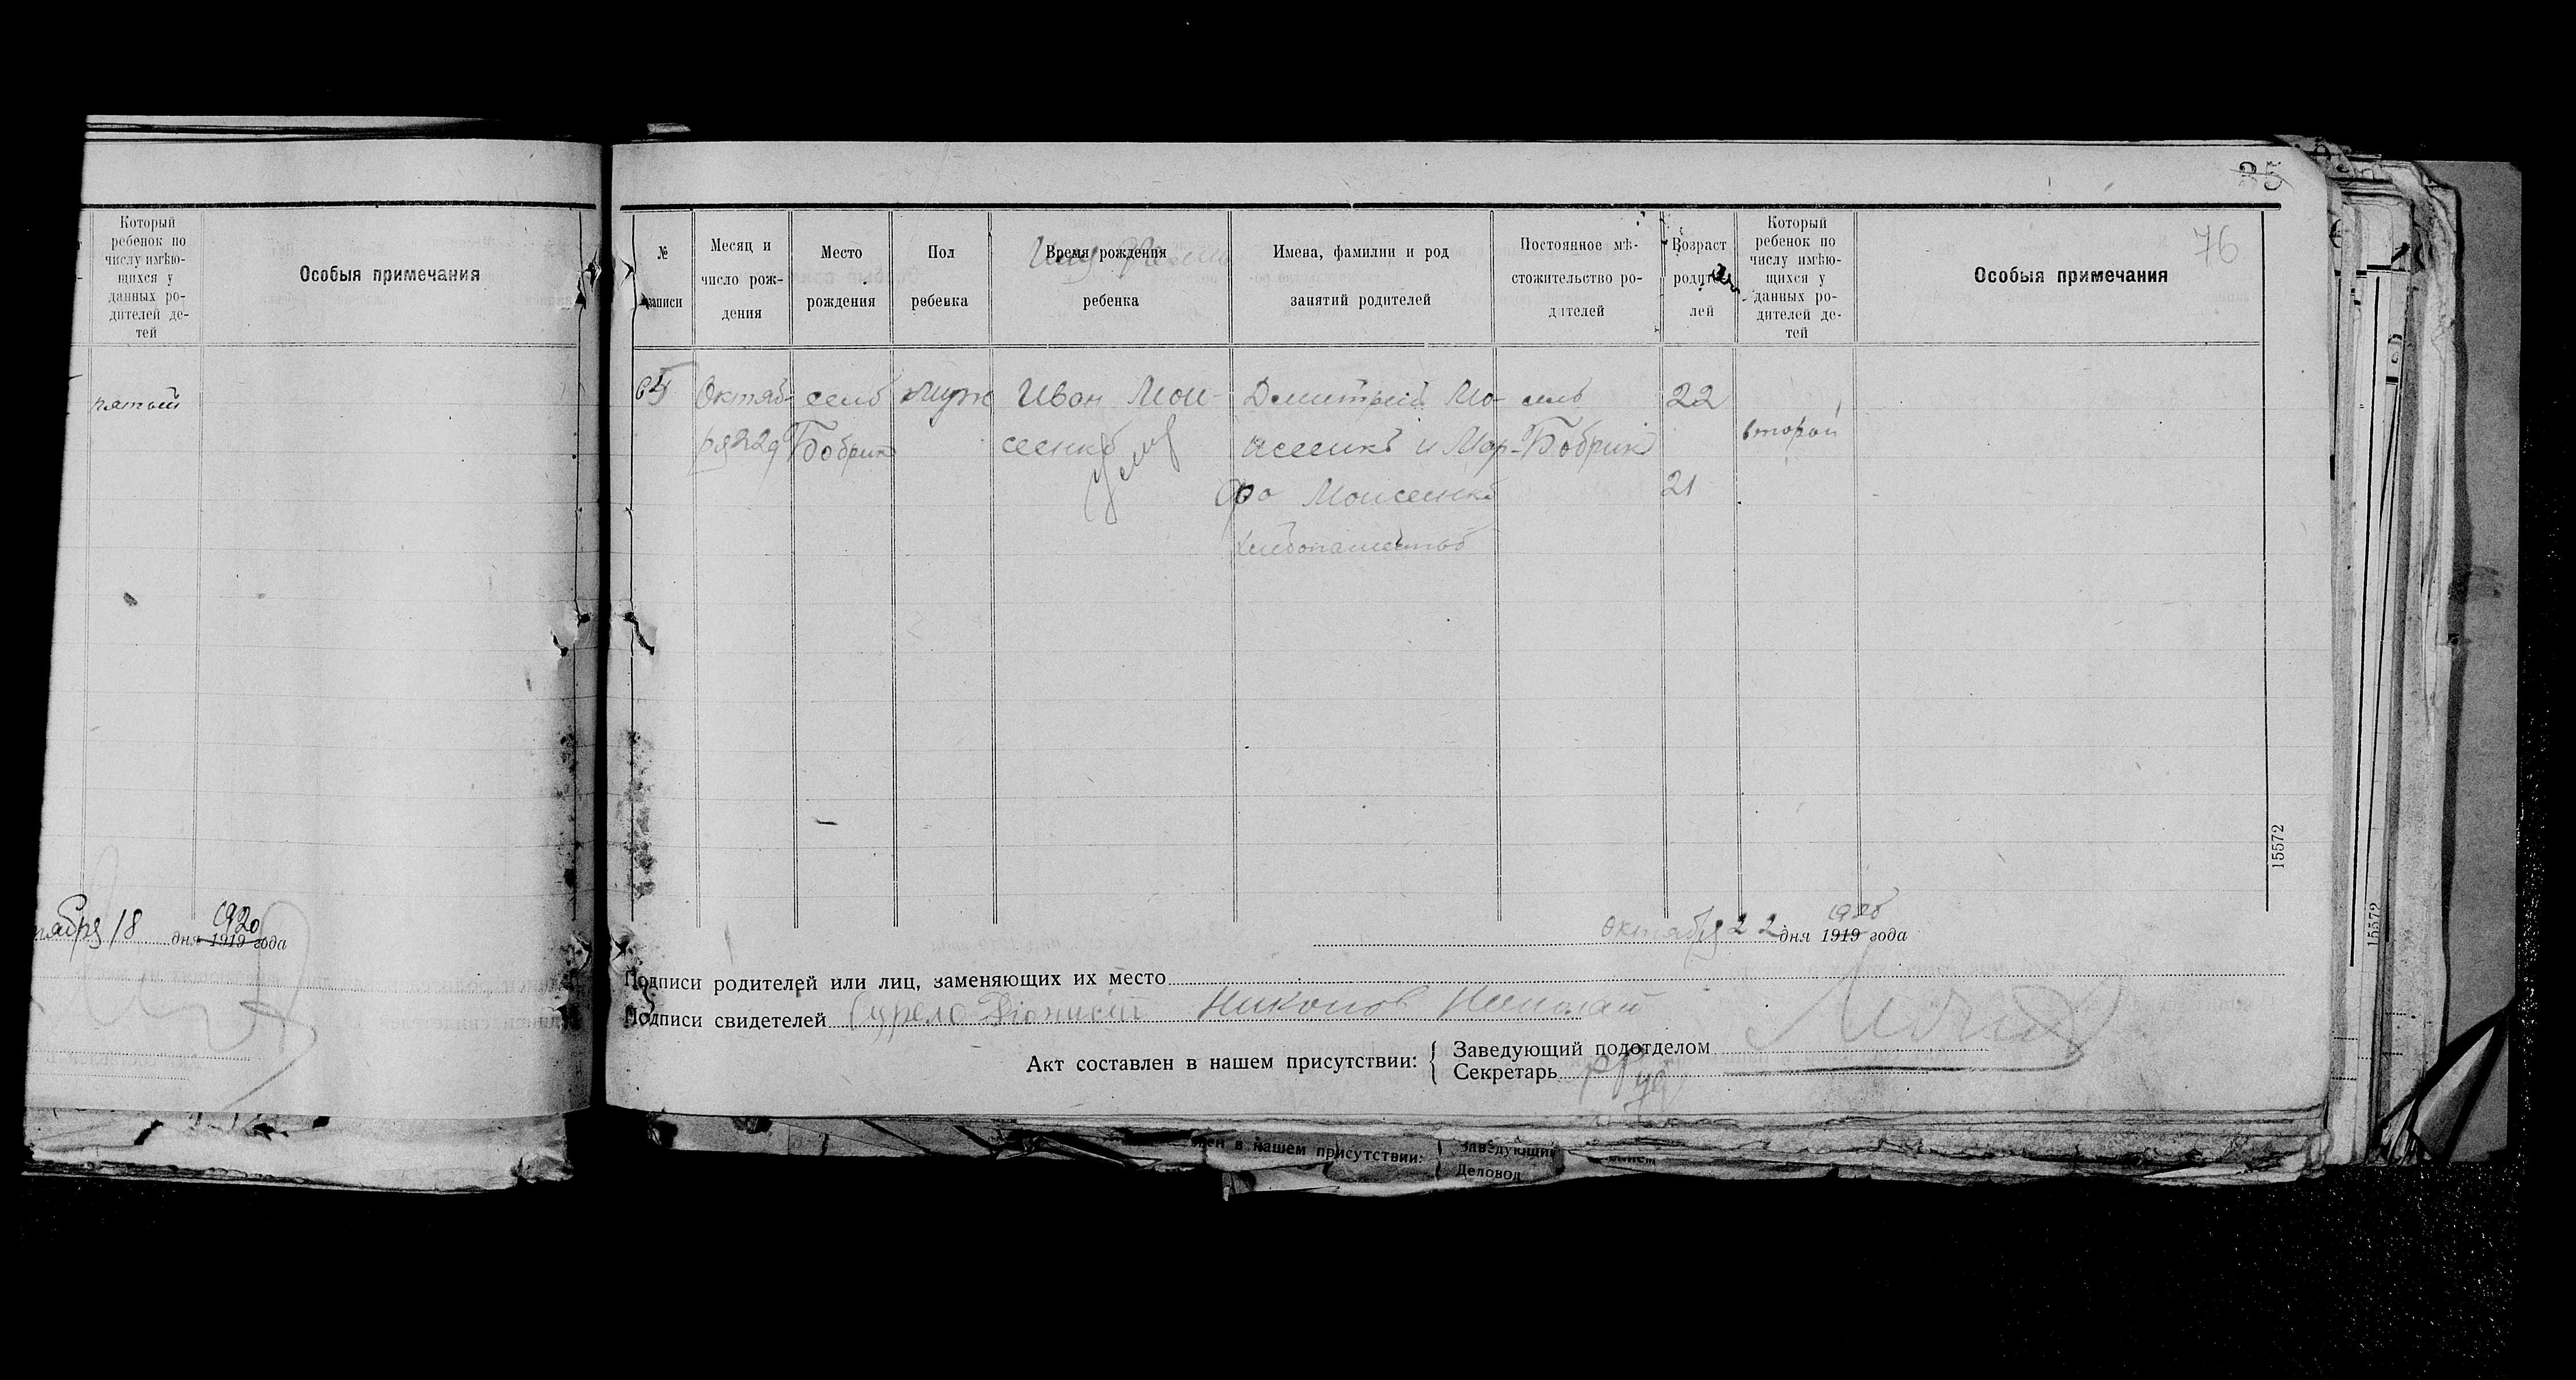 Который
ребенок по
числу имѣю-
щихся у
данных ро-
дителей де-
тей
Особыя примечания
пятый
18 дня 1919 года
1920
35
76
№
записи
Месяц и
число рож-
дения
Место
рождения
Пол
ребенка
Время рождения
ребенка
Имена, фамилии и род
занятий родителей
Постоянное мѣ-
стожительство ро-
дителей
Возраст
родите-
лей
Который
ребенок по
числу имѣю-
щихся у
данных ро-
дителей де-
тей
Особыя примечания
65 Октяб- село муж Иван Мои- Дмитрий Мо- село 22
ря 22д Бобрик сеенко исеенко и Мар- Бобрик второй
фа Моисеенко 21
хлебопашество
15572
15572
октября 22 дня 1919 года
1920
Подписи родителей или лиц, заменяющих их место
Подписи свидетелей Николай
Акт составлен в нашем присутствии:
Заведующий подотделом
Секретарь
в нашем присутствии:
Заведующий
Деловод